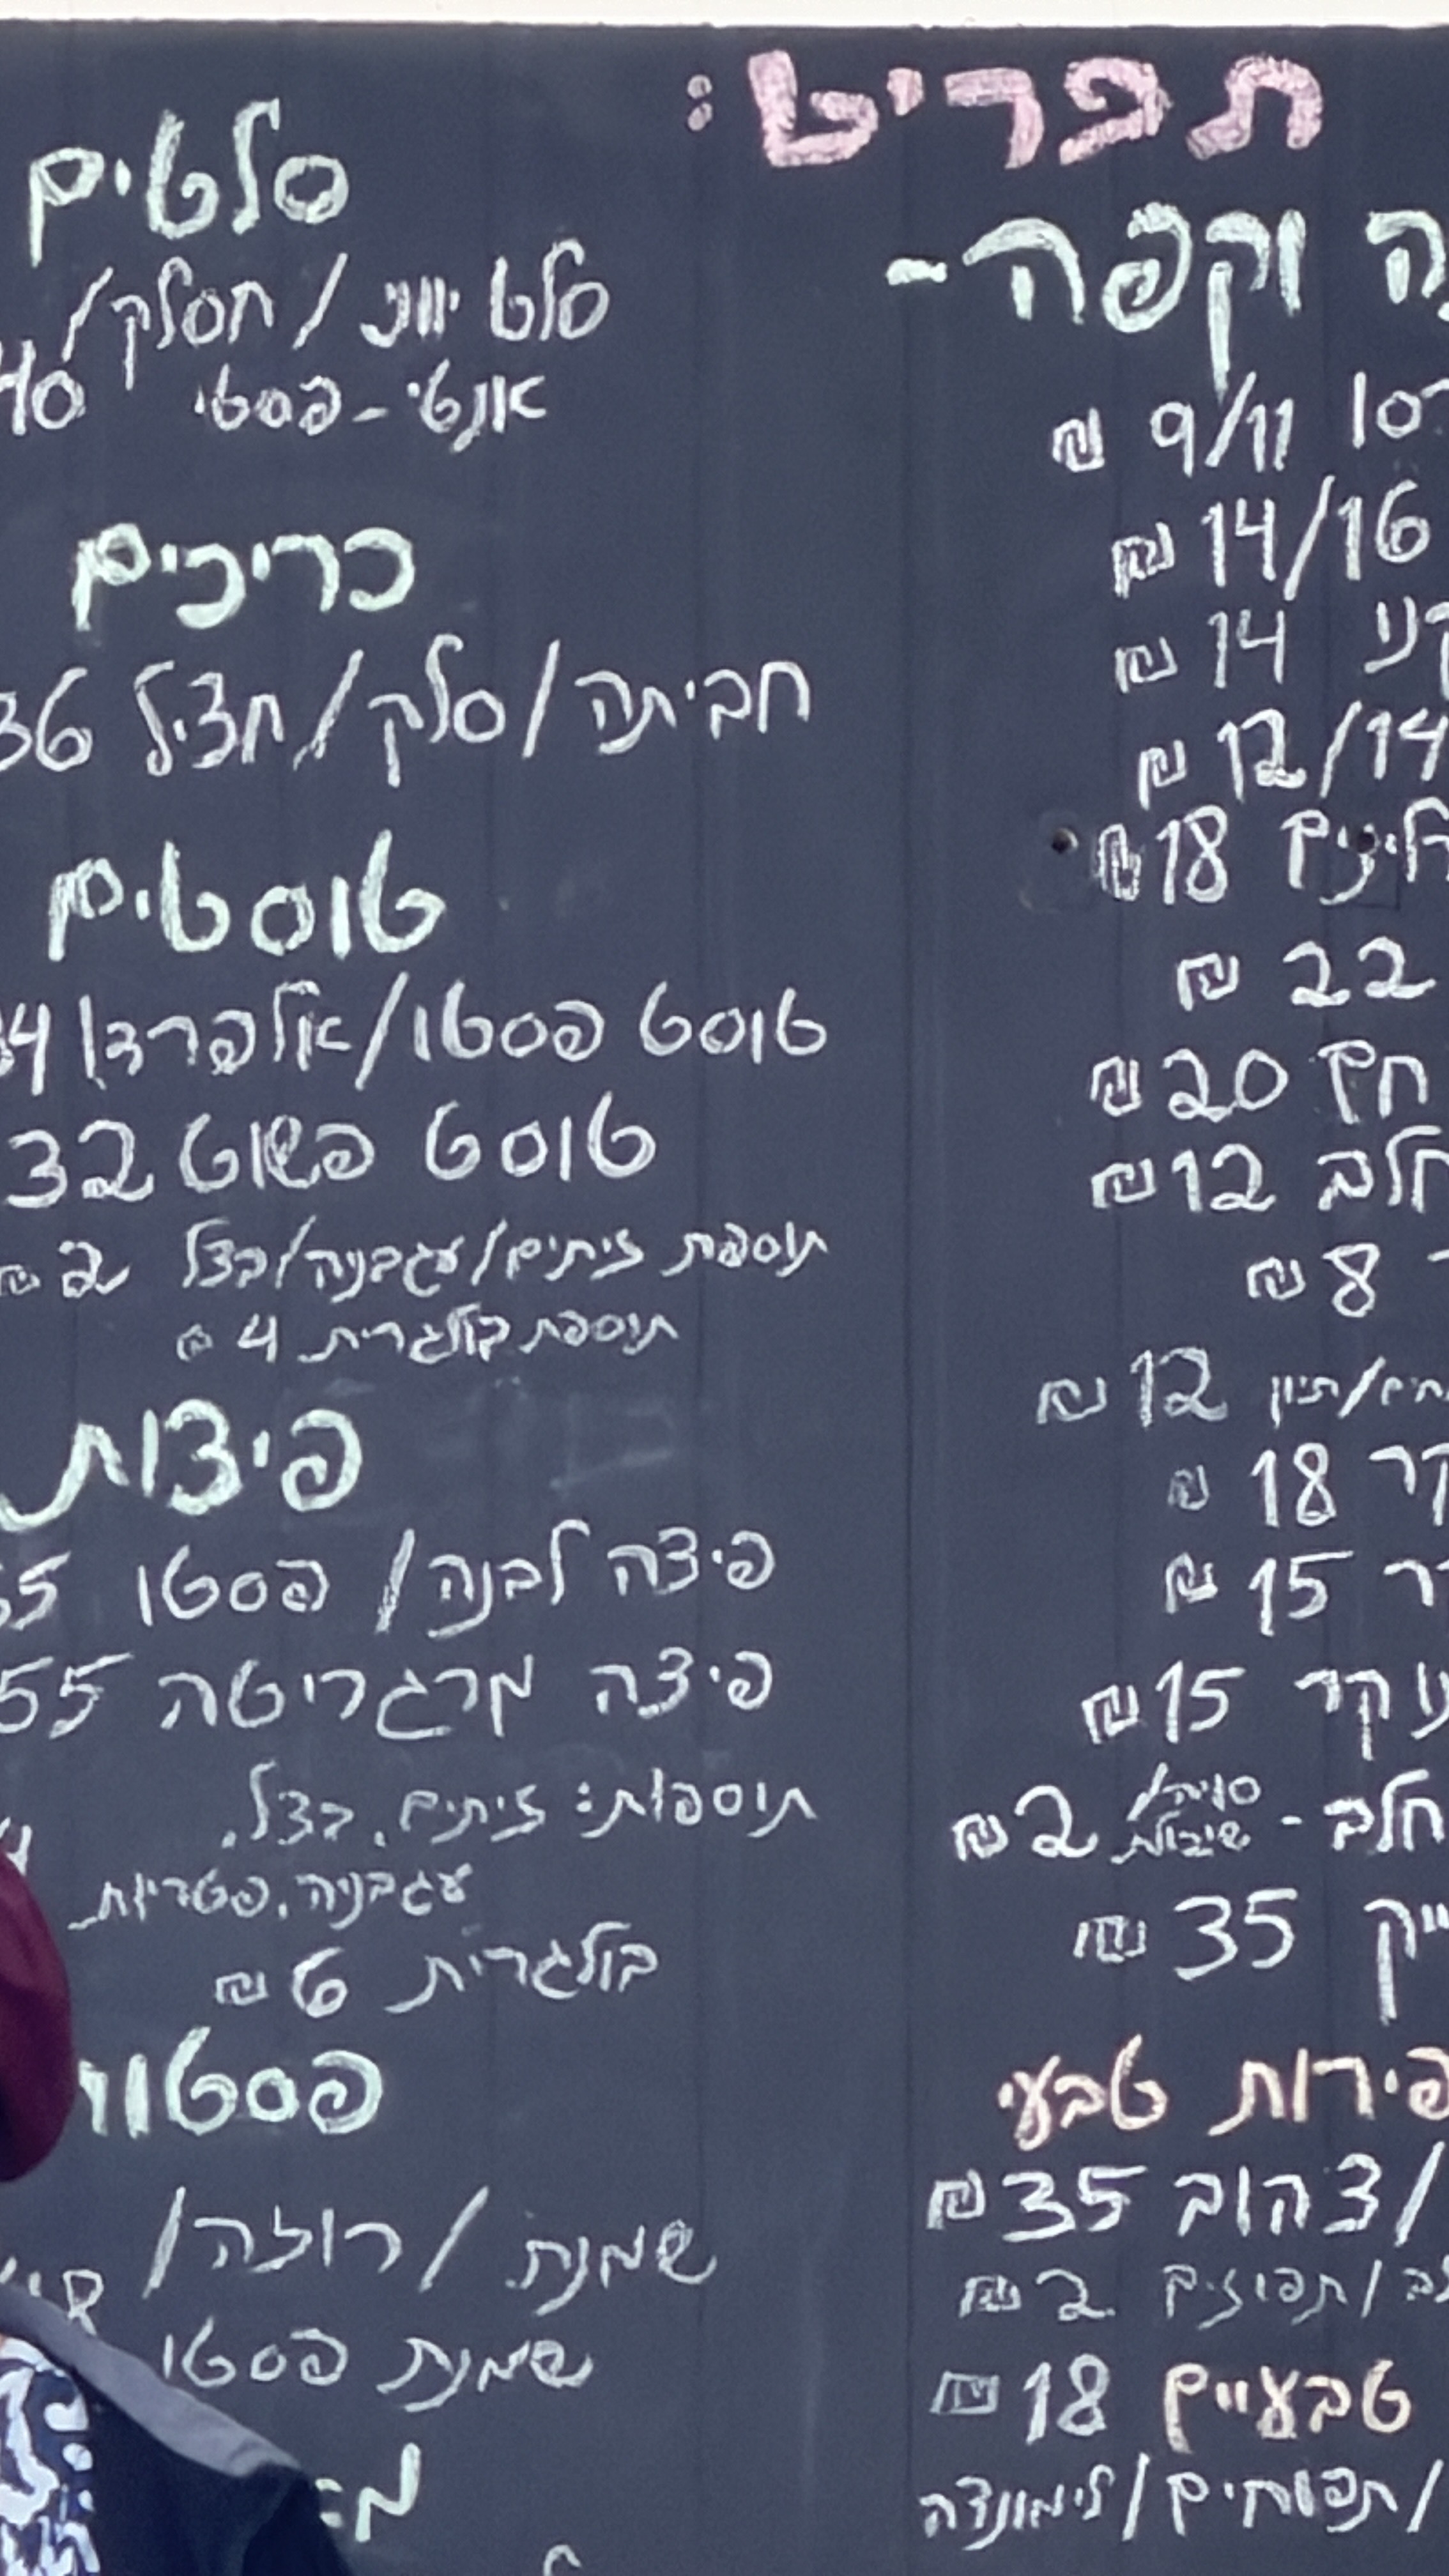 תפריט:
וקפה -
9/11 ₪
14/16 ₪
14 ₪
12/14 ₪
18 ₪
22 ₪
חם 20 ₪
חלב 12 ₪
8 ₪
/תיון 12 ₪
18 ₪
15 ₪
15 ₪
חלב - סויה/
שיבולת 2 ₪
35 ₪
פירות טבעי
/צהוב 35 ₪
/תפוזים 2 ₪
טבעיים 18 ₪
/תפוחים/לימונדה
סלטים
סלט יווני/חסלק/
אנטי-פסטי 40
כריכים
חביתה/סלק/חציל 36
טוסטים
טוסט פסטו/אלפרדו
טוסט פשוט 32
תוספת זיתים/עגבניה/בצל 2 ₪
תוספת בולגרית 4 ₪
פיצות
פיצה לבנה/פסטו
פיצה מרגריטה 55
תוספות: זיתים, בצל,
עגבניה, פטריות
בולגרית 6 ₪
פסטות
שמנת/רוזה/
שמנת פסטו